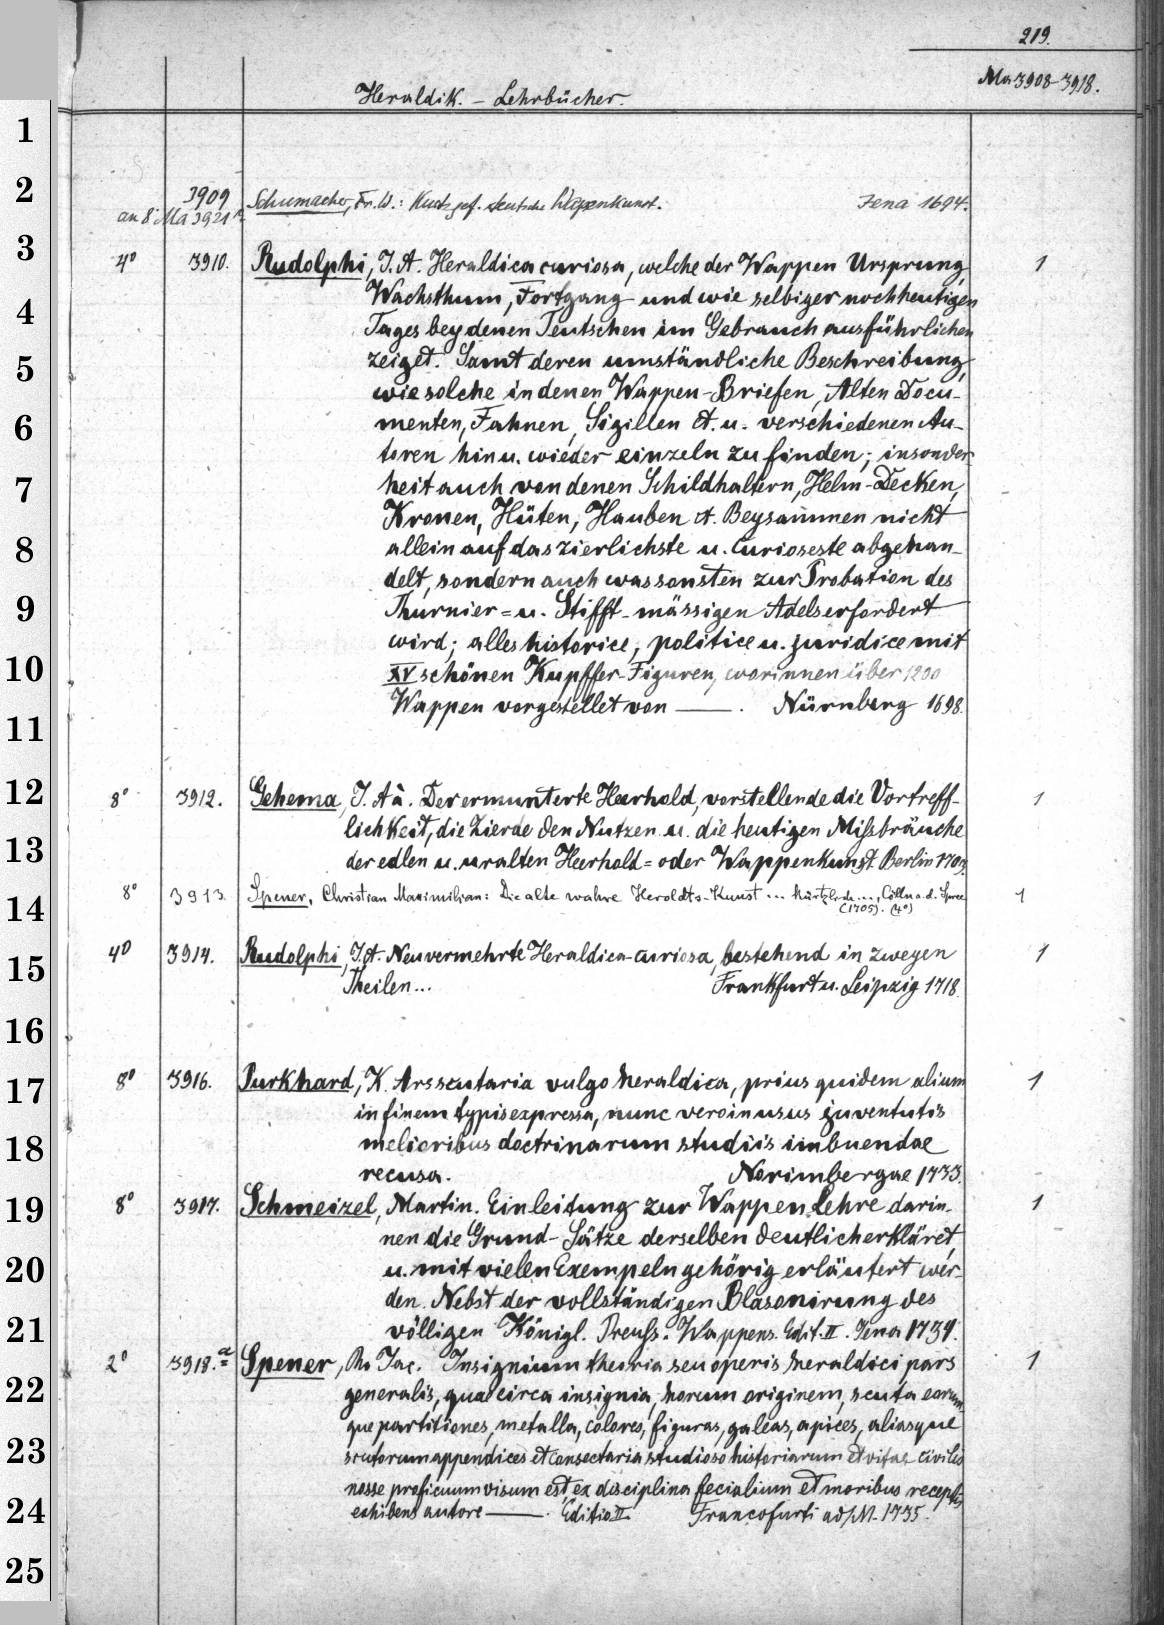 219.
Ma 3908-3918.
Heraldik. – Lehrbücher.
1
2
3909 Schumacher, Fr. W.: Kurtzgef. deutsche Wapenkunst. Jena 1694.
an 8° Ma 3921
3
4° 3910. Rudolphi, J. A. Heraldica curiosa, welche der Wappen Ursprung, 1
Wachsthum, Fortgang und wie selbiger noch heutigen
4
Tages bey denen Teutschen im Gebrauch ausführlichen
5
zeiget. Samt deren umständliche Beschreibung,
wie solche in denen Wappen-Briefen, Alten Docu-
6
menten, Fahnen, Sigillen et. u. verschiedenen Au-
toren hin u. wieder einzeln zu finden; insonder-
7
heit auch von denen Schildhaltern, Helm-Decken,
Kronen, Hüten, Hauben et. Beysammen nicht
8
allein auf das zierlichste u. curioseste abgehan-
delt, sondern auch was sonsten zur Probation des
9
Thurnier= u. Stifft-mässigen Adels erfordert
wird; alles historice, politice u. juridice mit
10
XV schönen Kupffer-Figuren, worinnen über 1200
Wappen vorgestellet von —. Nürnberg 1698.
11
12
8° 3912. Gehema, J. A à. Der ermunterte Heerhold, vorstellende die Vortreff- 1
lichkeit, die Zierde den Nutzen u. die heutigen Missbräuche
13
der edlen u. uralten Heerhold= oder Wappenkunst. Berlin 1703.
14
8° 3913. Spener, Christian Maximilian: Die alte wahre Heroldts-Kunst ... kürtzlich ..., Cölln a. d. Spree 1
(1705). (4°)
4° 3914. Rudolphi, J. A. Neu vermehrte Heraldica-curiosa, bestehend in zweyen 1
15
Theilen... Frankfurt u. Leipzig 1718.
16
17
8° 3916. Purkhard, K. Ars scutaria vulgo heraldica, prius quidem alium 1
in finem typis expressa, nunc vero in usus juventutis
18
melioribus doctrinarum studiis imbuendae
recusa. Norimbergae 1733.
19
8° 3917. Schmeizel, Martin. Einleitung zur Wappen Lehre darin- 1
nen die Grund-Sätze derselben deutlich erkläret,
20
u. mit vielen Exempeln gehörig erläutert wer-
den. Nebst der vollständigen Blasonirung des
21
völligen Königl. Preuss. Wappens. Edit. II. Jena 1734.
2° 3918.a Spener, Ph. Jac. Insignium theoria seu operis heraldici pars 1
22
generalis, quae circa insignia, horum originem, scuta eorum-
que partitiones, metalla, colores, figuras, galeas, apices, aliasque
23
scutorum appendices et consectaria studioso historiarum et vitae civilis
nosse proficuum visum est ex disciplina fecialium et moribus receptis,
24
exhibens autore —. Editio II. Francofurti ad/M. 1735.
25